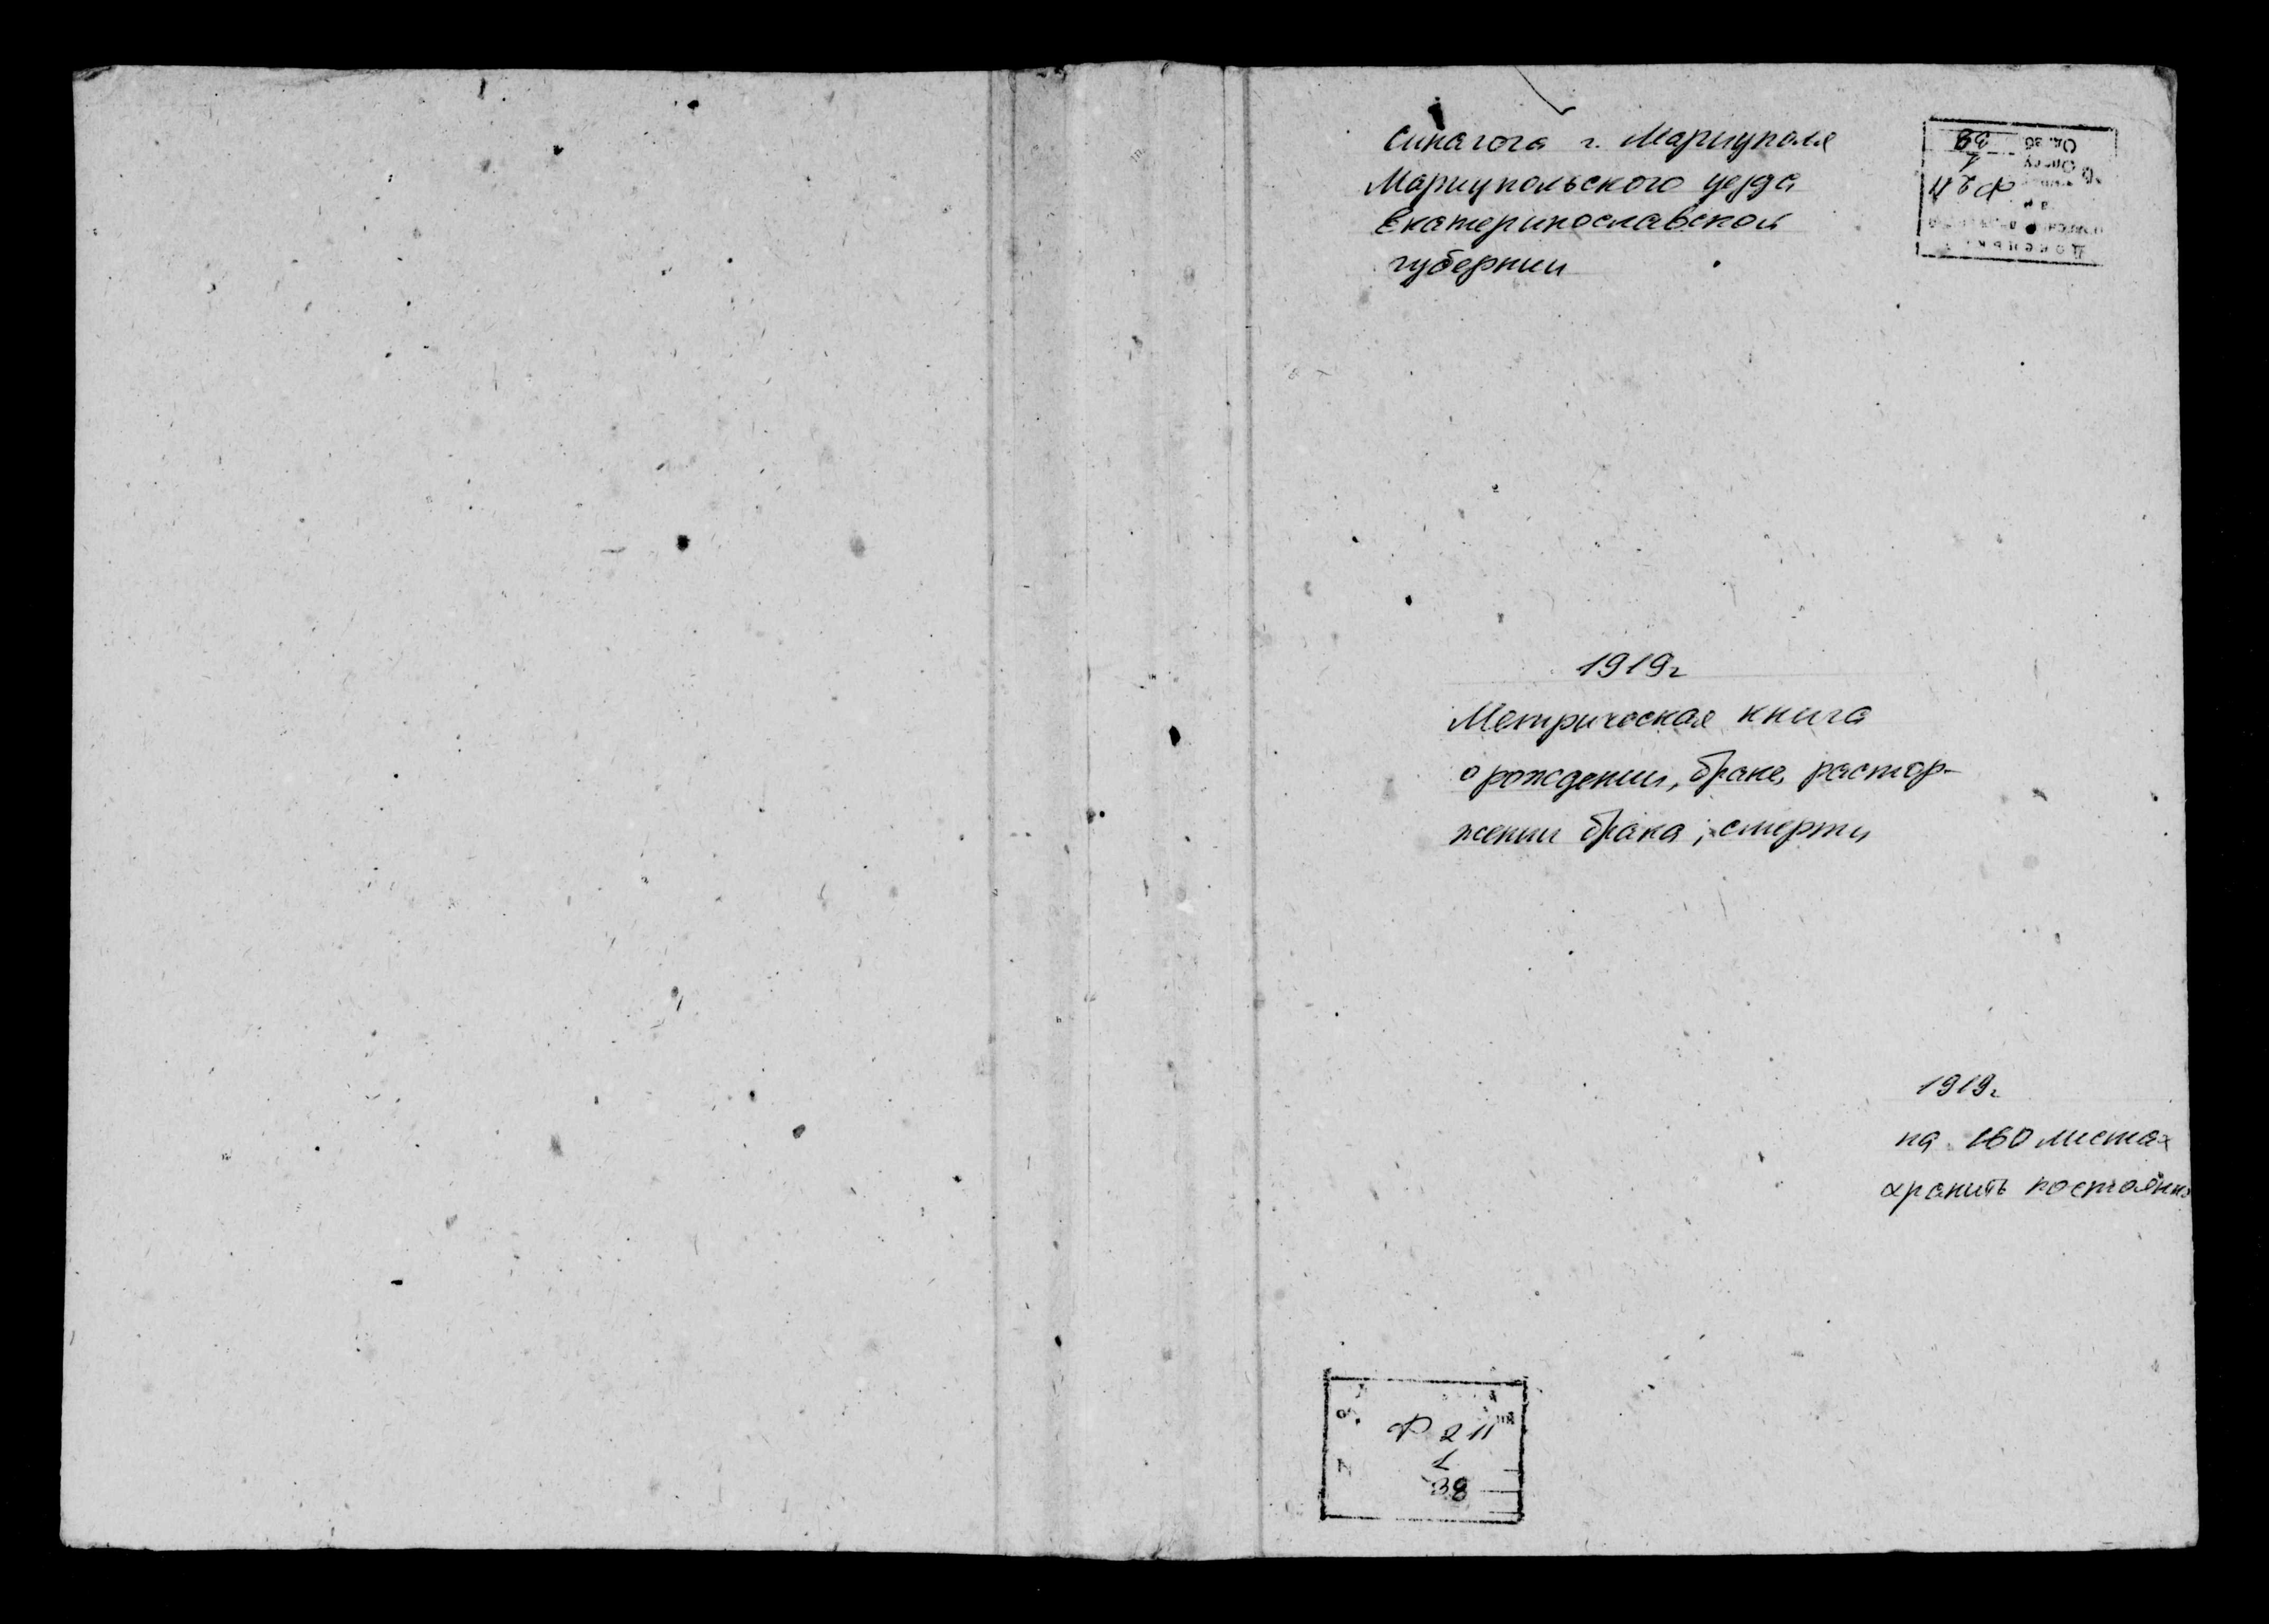 Синагога г. Мариуполя
Мариупольского уезда
Екатеринославской
губернии
1919г
Метрическая книга
о рождении, браке, растор-
жении брака, смерти
1919г
на 160 листах
хранить постоянно
Ф 211
1
38